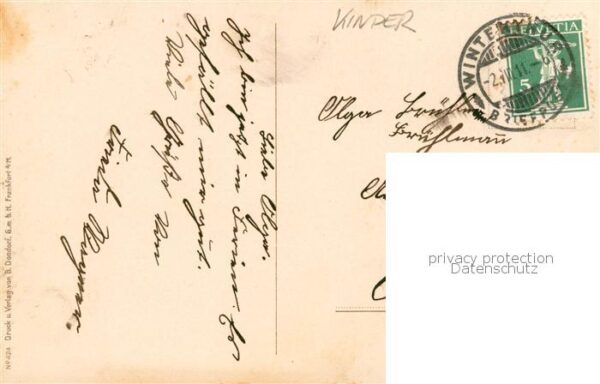 KINDER
HELVETIA
5
WINTERTHUR
BRIEF
Olga Brühlm
Brühlmau
privacy protection
Datenschutz
Liebe Olga.
Ich bin jetzt in Ferien. Es
gefällt mir gut.
Viele Grüße von
No 424 Druck u. Verlag von B. Dondorf, G.m.b.H. Frankfurt a/M.